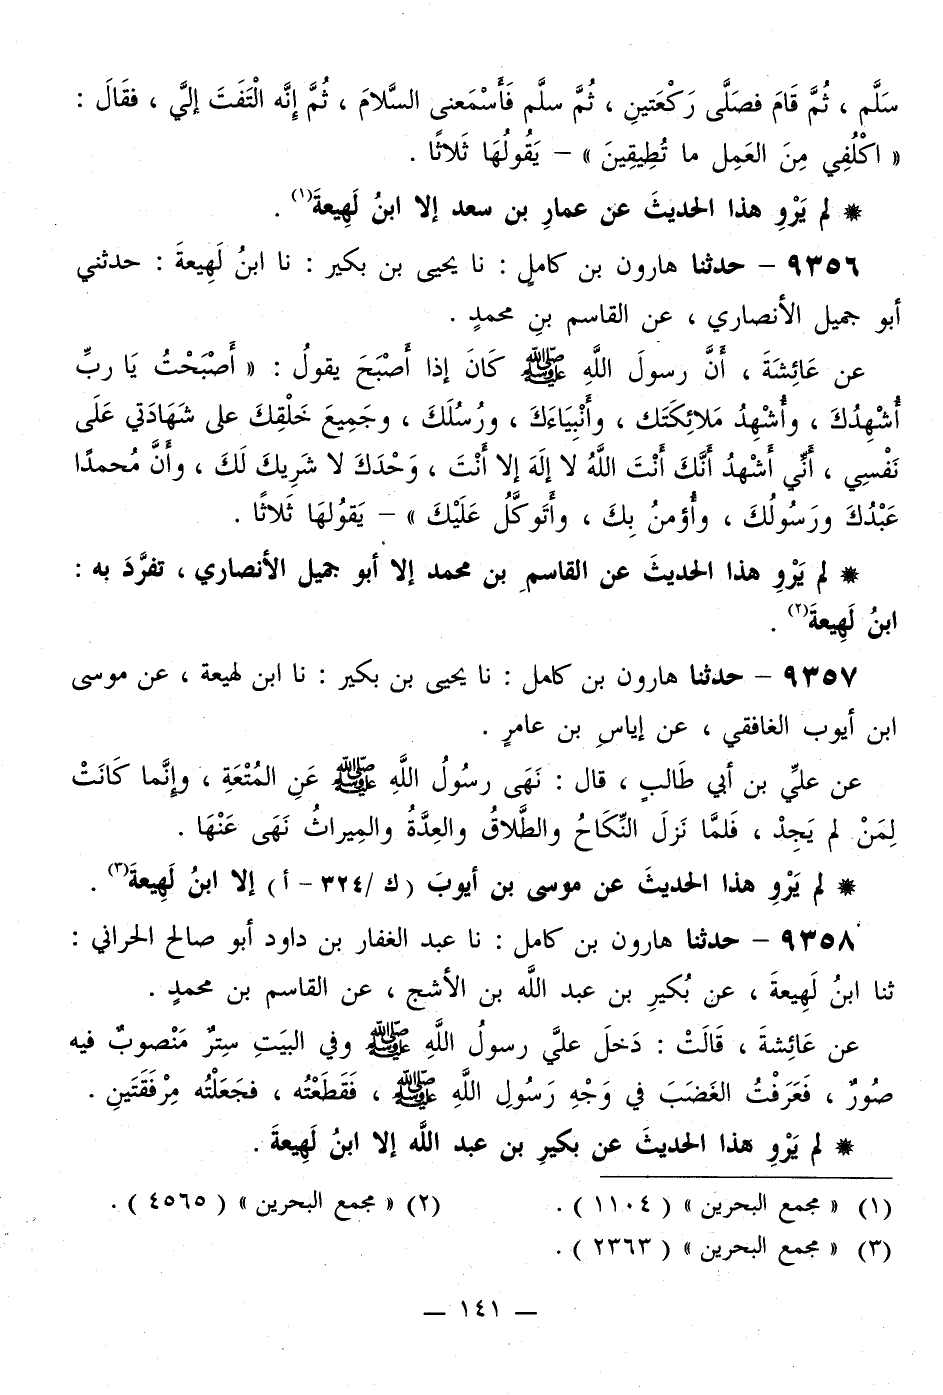 سَلَّم ، ثُمَّ قَامَ فصَلَّى رَكْعَتينِ ، ثُمَّ سلَّم فَأَسْمَعنى السَّلامَ ، ثُمَّ إِنَّه الْتَفَتَ إليَّ ، فقَالَ :
« اكْلُفِي مِنَ العَمِل ما تُطِيقِينَ » – يَقُولُهَا ثَلاثًا .
* لم يَرْوِ هذا الحديثَ عن عمارِ بن سعد إلا ابنُ لَهِيعةَ(١) .
٩٣٥٦ – حدثنا هارون بن كاملٍ : نا يحيى بن بكير : نا ابنُ لَهِيعةَ : حدثني
أبو جميل الأنصاري ، عن القاسم بنِ محمدٍ .
عن عَائِشَةَ ، أَنَّ رسولَ اللَّهِ ﷺ كَانَ إذا أَصْبَحَ يقولُ : « أَصْبَحْتُ يَا ربِّ
أُشْهِدُكَ ، وأُشْهِدُ مَلائِكَتَك ، وأَنْبِيَاءَكَ ، ورُسُلَكَ ، وجَمِيعَ خَلْقِكَ على شَهَادَتي عَلَى
نَفْسِي ، أَنِّي أَشْهدُ أَنَّكَ أَنْتَ اللَّهُ لا إلَهَ إلا أَنْتَ ، وَحْدَكَ لا شَرِيكَ لَكَ ، وأَنَّ مُحمدًا
عَبْدُكَ ورَسُولُكَ ، وأُؤمنُ بِكَ ، وأَتَوكَّلُ عَلَيْكَ » – يَقُولهَا ثَلاثًا .
* لم يَرْوِ هذا الحديثَ عن القاسمِ بن محمد إلا أبو جميل الأنصاري ، تفرَّدَ به :
ابنُ لَهِيعةَ(٢) .
٩٣٥٧ – حدثنا هارون بن كامل : نا يحيى بن بكير : نا ابن لهيعة ، عن موسى
ابن أيوب الغافقي ، عن إياسِ بن عامرٍ .
عن عليِّ بن أبي طَالبٍ ، قال : نَهَى رسُولُ اللَّهِ ﷺ عَنِ المُتْعَةِ ، وإنَّما كَانَتْ
لِمَنْ لم يَجِدْ ، فَلمَّا نَزلَ النِّكَاحُ والطَّلاقُ والعِدَّةُ والمِيراثُ نَهَى عَنْهَا .
* لم يَرْوِ هذا الحديثَ عن موسى بن أيوبَ ( ك /٣٢٤ – أ ) إلا ابنُ لَهِيعةَ(٣) .
٩٣٥٨ – حدثنا هارون بن كامل : نا عبد الغفار بن داود أبو صالح الحراني :
ثنا ابنُ لَهِيعةَ ، عن بُكيرِ بن عبد الله بن الأشج ، عن القاسم بن محمدٍ .
عن عَائِشةَ ، قَالَتْ : دَخلَ عليَّ رسولُ اللَّهِ ﷺ وفي البيَتِ سِترٌ مَنْصوبٌ فيه
صُورٌ ، فَعَرَفْتُ الغَضبَ في وَجْهِ رَسُولِ اللَّهِ ﷺ ، فَقَطَعْتُه ، فجَعَلْتُه مِرْفَقَتَينِ .
* لم يَرْوِ هذا الحديثَ عن بكيرِ بن عبد اللَّه إلا ابنُ لَهِيعةَ .
(١) « مجمع البحرين » ( ١١٠٤ ) . (٢) « مجمع البحرين » ( ٤٥٦٥ ) .
(٣) « مجمع البحرين » ( ٢٣٦٣ ) .
— ١٤١ —